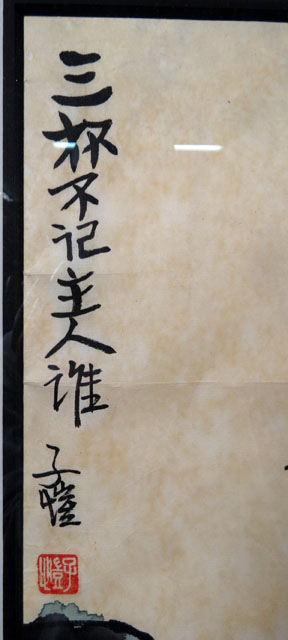 三杯不记主人谁
子愷